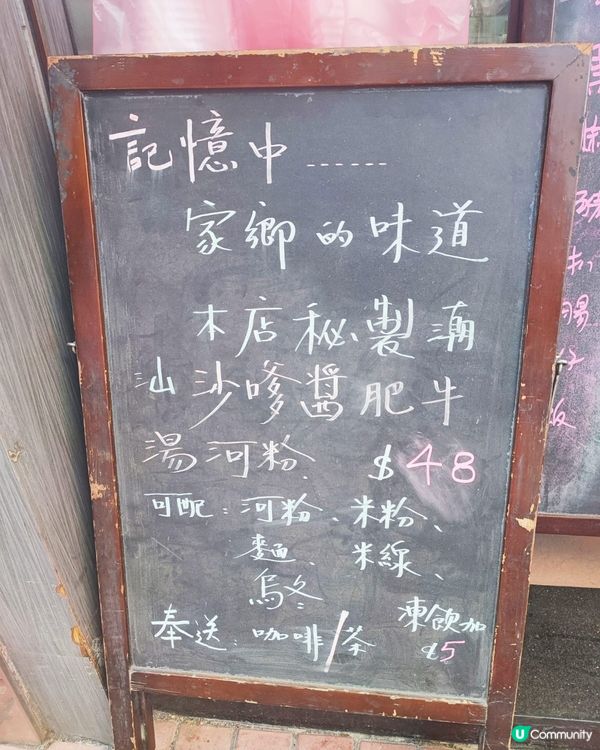 記憶中 ------
家鄉的味道
本店秘製潮
汕沙嗲醬肥牛
湯河粉 $48
可配：河粉、米粉、
麵、米線、
烏冬
奉送：咖啡/茶 凍飲加
$5
腸
U Community